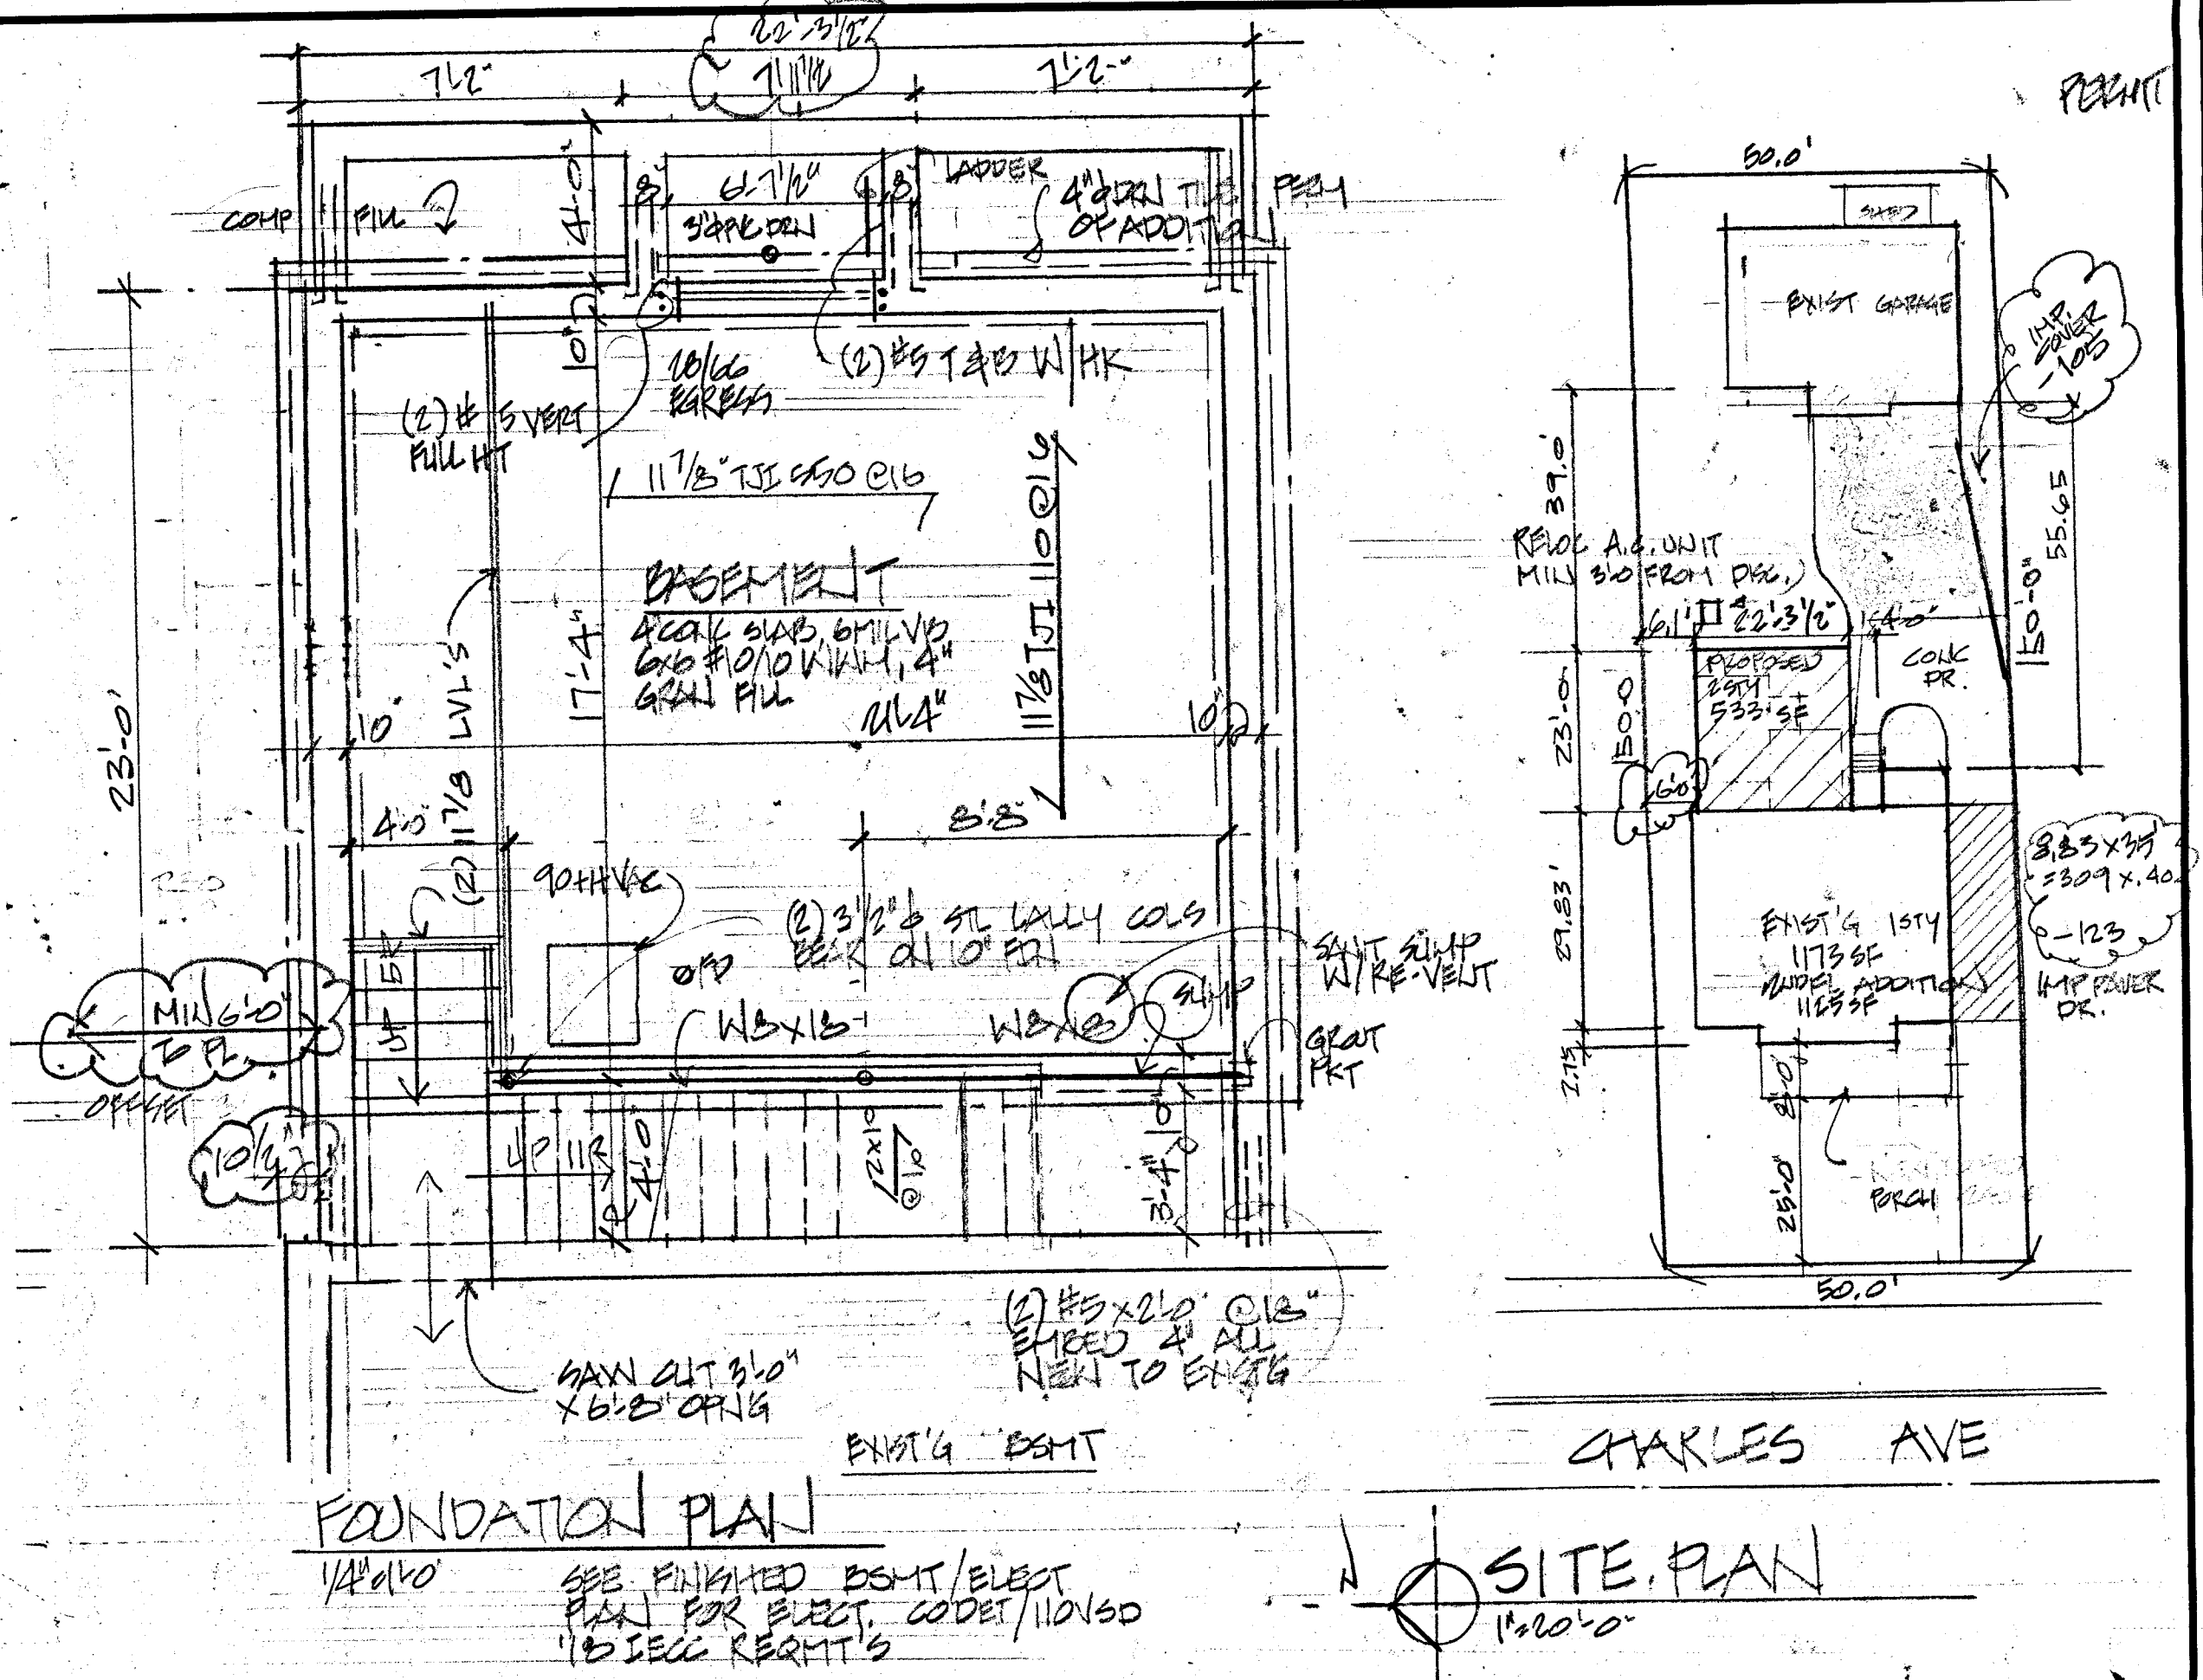 22'-3 1/2"
7'-2"
7'-11 1/2
7'-2"
PERMIT
COMP FILL
4'-0"
8"
6'-7 1/2"
8"
3"Ø PVC DRN
LADDER
4"Ø DRN TILE PERM
OF ADDITION
10"
28/66
EGRESS
(2) #5 T&B W/HK
(2) # 5 VERT
FULL HT
11 7/8" TJI 550 @16
11 7/8 TJI 110 @16
BASEMENT
4" CONC SLAB, 6 MIL VB,
6x6 #10/10 WWM, 4"
GRAN FILL
17'-4"
21'-4"
10"
10"
23'-0"
(2) 11 7/8 LVL'S
4'-0"
8'-8"
90+HVAC
(2) 3 1/2"Ø STL LALLY COLS
BEAR ON 10" FDN
FD
SANIT SUMP
W/ RE-VENT
SUMP
W8x18
W8x18
GROUT
PKT
MIN 6'-0"
TO PL.
OFFSET
10 1/2"
UP 5R
UP 11R
4'-0"
2x10
@16
10"
3'-4"
(2) #5 x 2'-0" @18"
EMBED 4" ALL
NEW TO EXIST'G
SAW CUT 3'-0"
x 6'-8" OPN'G
EXIST'G BSMT
FOUNDATION PLAN
1/4"=1'-0"
SEE FINISHED BSMT/ELECT
PLAN FOR ELECT. CO DET/110V SD
'18 IECC REQMT'S
50.0'
SHED
EXIST GARAGE
IMP.
COVER
-105
39.0'
55.65
150'-0"
RELOC A.C. UNIT
MIN 3'-0 FROM DISC.
6.1'
22'-3 1/2"
4'-0"
PROPOSED
2STY
533 SF
CONC
DR.
23'-0"
150.0
6'-0"
8.83 x 35'
=309 x .40
-123
IMP COVER
DR.
29.83'
EXIST'G 1STY
1173 SF
2NDFL ADDITION
1125 SF
2.75
8'-0"
25'-0"
PORCH
50.0'
CHARLES AVE
N
SITE PLAN
1"=20'-0"